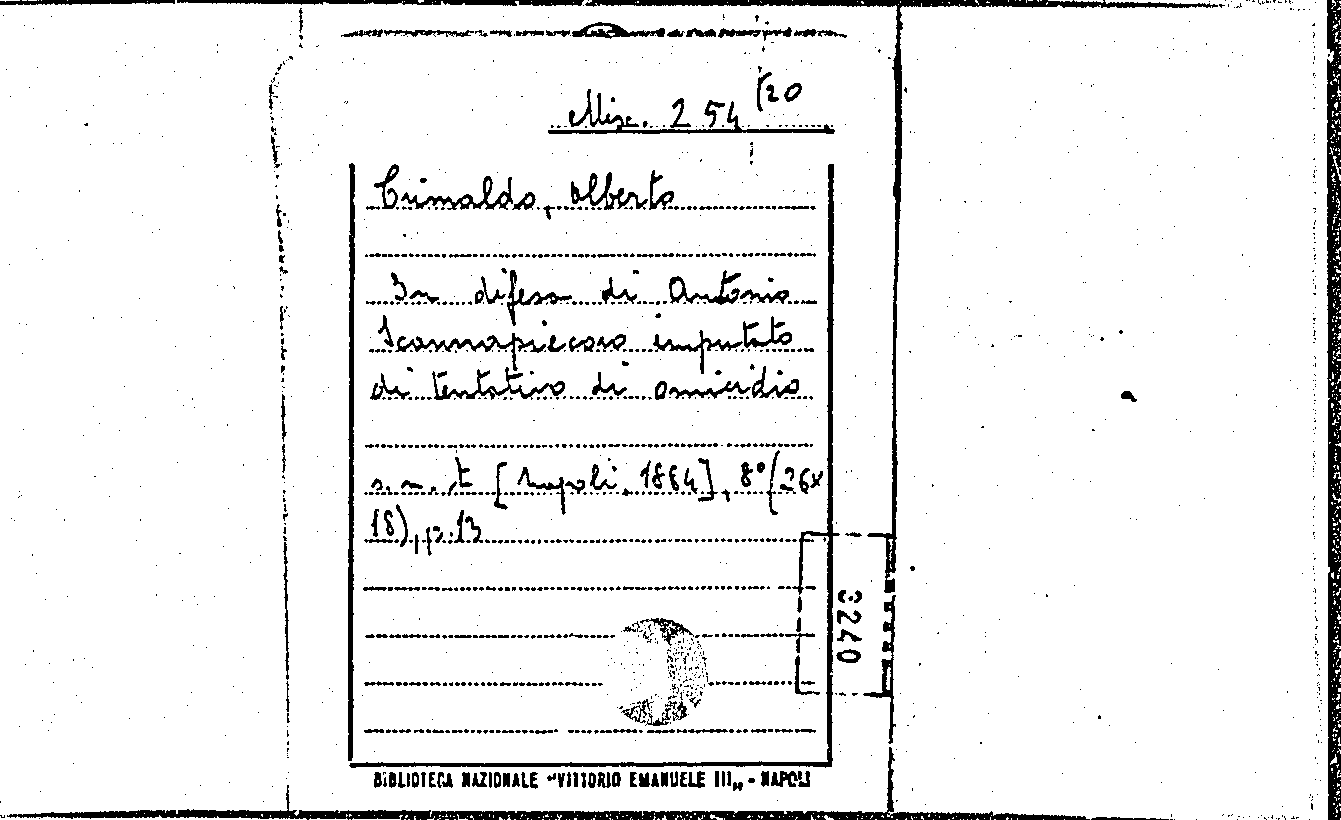 Misc. 254 (20
Grimaldo, Alberto
In difesa di Antonio
Scannapiecoro imputato
di tentativo di omicidio
s.n.t. [Napoli, 1864], 8° (26x
18), p. 13
3240
BIBLIOTECA NAZIONALE "VITTORIO EMANUELE III„ - NAPOLI